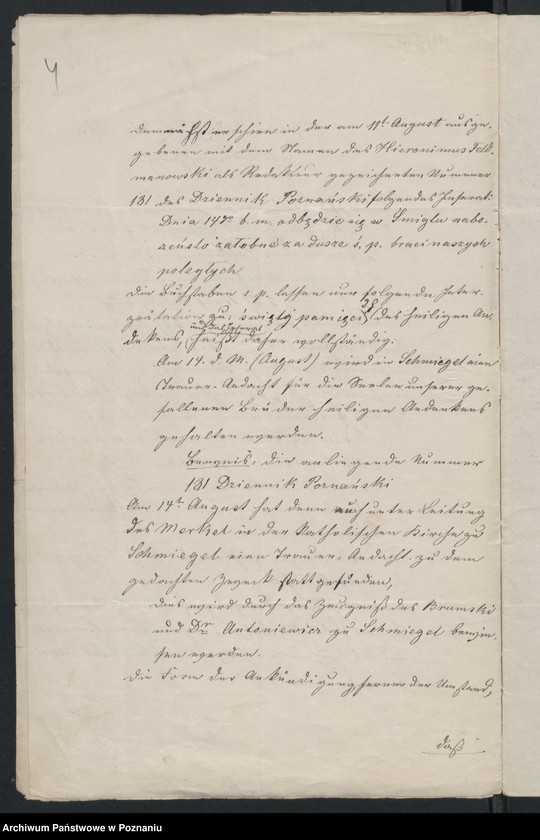 4
demnächst erschien in der am 11t. August ausge-
gebenen mit dem Namen des Hieronimus Feld-
manowski als Redakteur gezeichneten Nummer
181 des Dziennik Poznański folgendes Inserat:
Dnia 14go b. m. odbędzie się w Śmiglu nabo-
żeństo żałobne za dusze ś. p. braci naszych
poległych
Die Buchstaben s. p. lassen nur folgende Inter-
pretation zu: świętej pamięci (des heiligen An-
denkens, und das Inserat heißt daher vollständig:
Am 14. d. M. (August) wird in Schmiegel eine
Trauer-Andacht für die Seelen unserer ge-
fallenen Brüder heiligen Andenkens
gehalten werden.
Beweis: die anliegende Nummer
181 Dziennik Poznański
Am 14t. August hat denn auch unter Leitung
des Merkel in der katholischen Kirche zu
Schmiegel eine Trauer-Andacht zu dem
gedachten Zweck stattgefunden,
dies wird durch das Zeugniß des Brumski
und Dr. Antoniewicz zu Schmiegel bewie-
sen werden.
Die Form der Ankündigung, ferner der Umstand,
daß
Archiwum Państwowe w Poznaniu